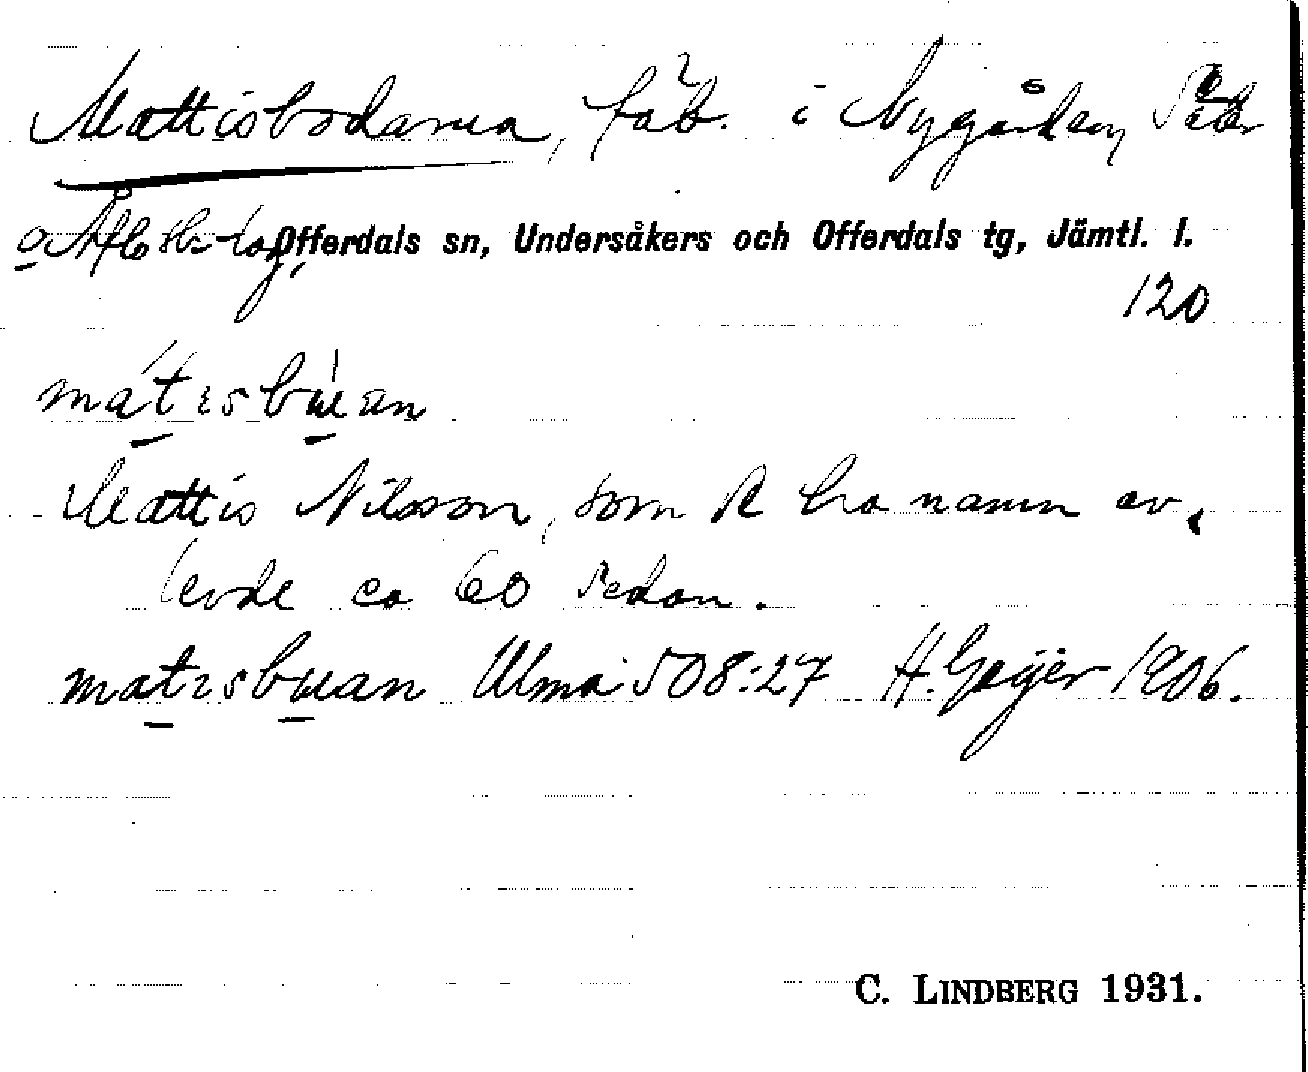 Mattisbodarna, fäb. i Nygården, Säter
o Åflohö tog, Offerdals sn, Undersåkers och Offerdals tg, Jämtl. l.
120
mátɩsbu̍an
Mattis Nilsson, som R ha namn av,
levde ca 60 sedan.
matɩsbuan Ulma 508:27 H. Geijer 1906.
C. LINDBERG 1931.